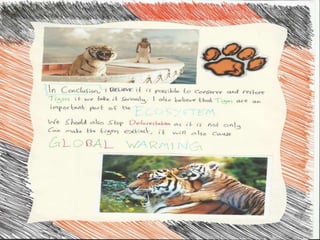 In Conclusion, I BELIEVE it is possible to Conserve and restore
Tigers if we take it seriously. I also believe that Tigers are an
important part of the ECOSYSTEM
We Should also Stop Deforestation as it is not only
Can make the tigers extinct, it will also cause
GLOBAL WARMING